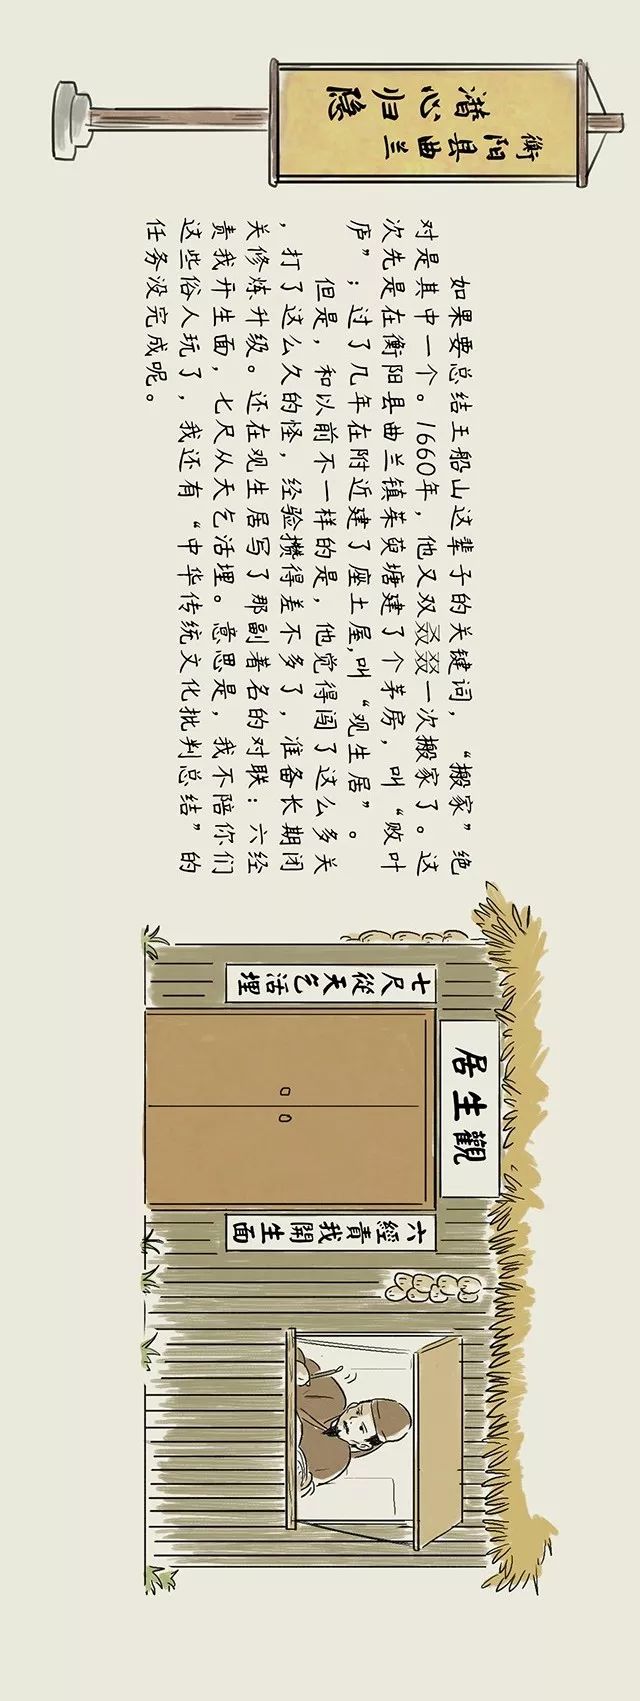 衡阳县曲兰
潜心归隐
如果要总结王船山这辈子的关键词，“搬家”绝
对是其中一个。1660年，他又双叒叕一次搬家了。这
次先是在衡阳县曲兰镇茱萸塘建了个茅房，叫“败叶
庐”；过了几年在附近建了座土屋,叫“观生居”。
但是，和以前不一样的是，他觉得闯了这么多关
，打了这么久的怪，经验攒得差不多了，准备长期闭
关修炼升级。还在观生居写了那副著名的对联：六经
责我开生面，七尺从天乞活埋。意思是，我不陪你们
这些俗人玩了，我还有“中华传统文化批判总结”的
任务没完成呢。
觀生居
六經責我開生面
七尺從天乞活埋